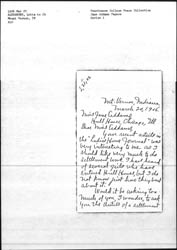 Swarthmore College Peace Collection
Jane Addams Papers
Series 1
Mt. Vernon, Indiana
March 20, 1916
Miss Jane Addams,
Hull House, Chicago, Ill.
Dear Miss Addams:
Your recent article in
the "Ladies Home Journal" was
very interesting to me as I
should like very much to do
settlement work. I have heard
of several girls who have
entered Hull House, but I do
not know just how they went
about it.
Would it be asking too
much of you, I wonder, to ask
you the details of a settlement